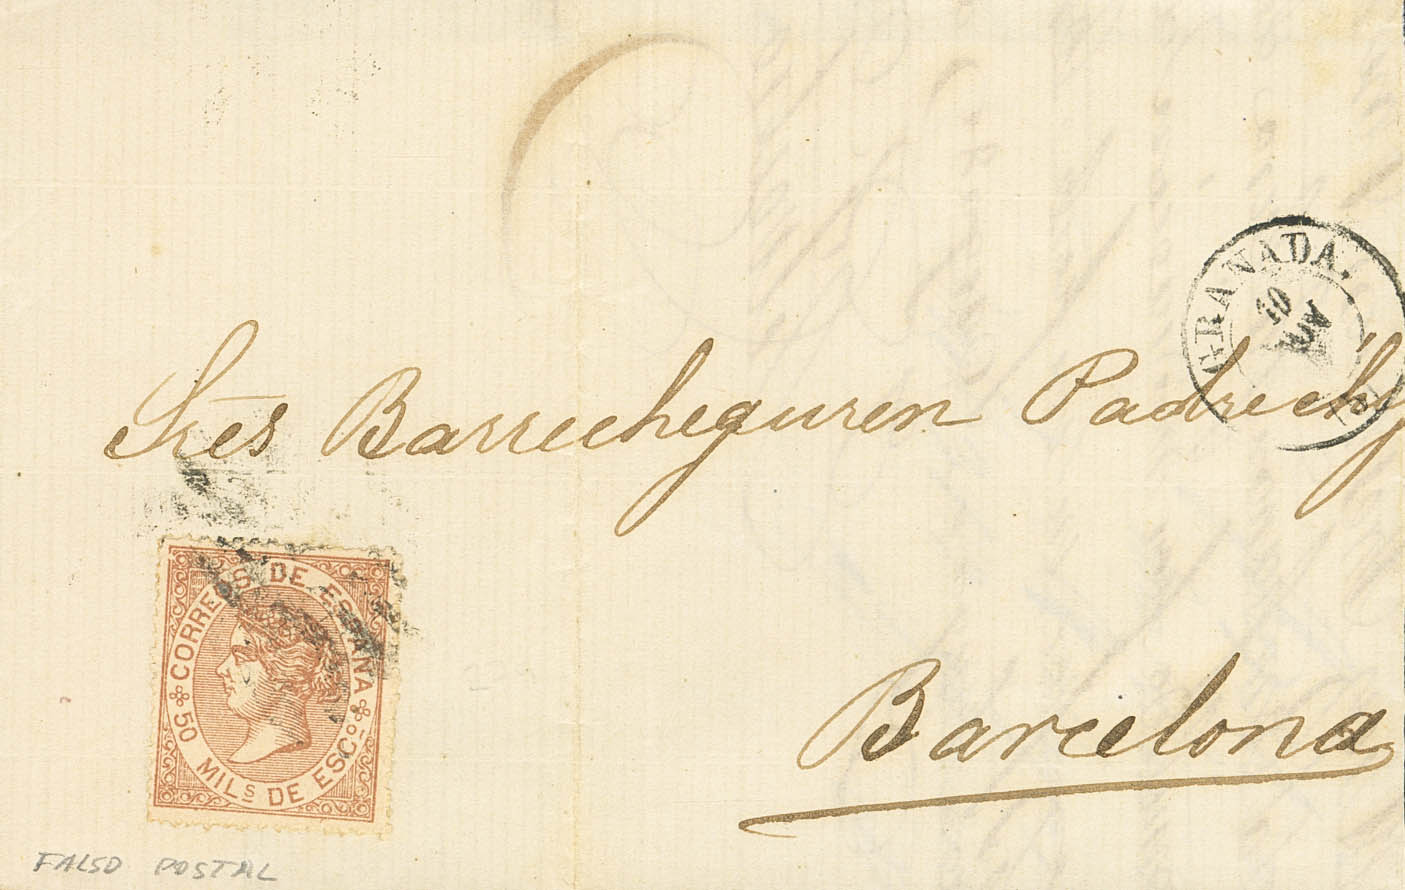 GRANADA.
10
NOV
Sres Barrecheguren Padre é hj
Barcelona
CORREOS DE ESPAÑA
50 MILS DE ESCO.
FALSO POSTAL